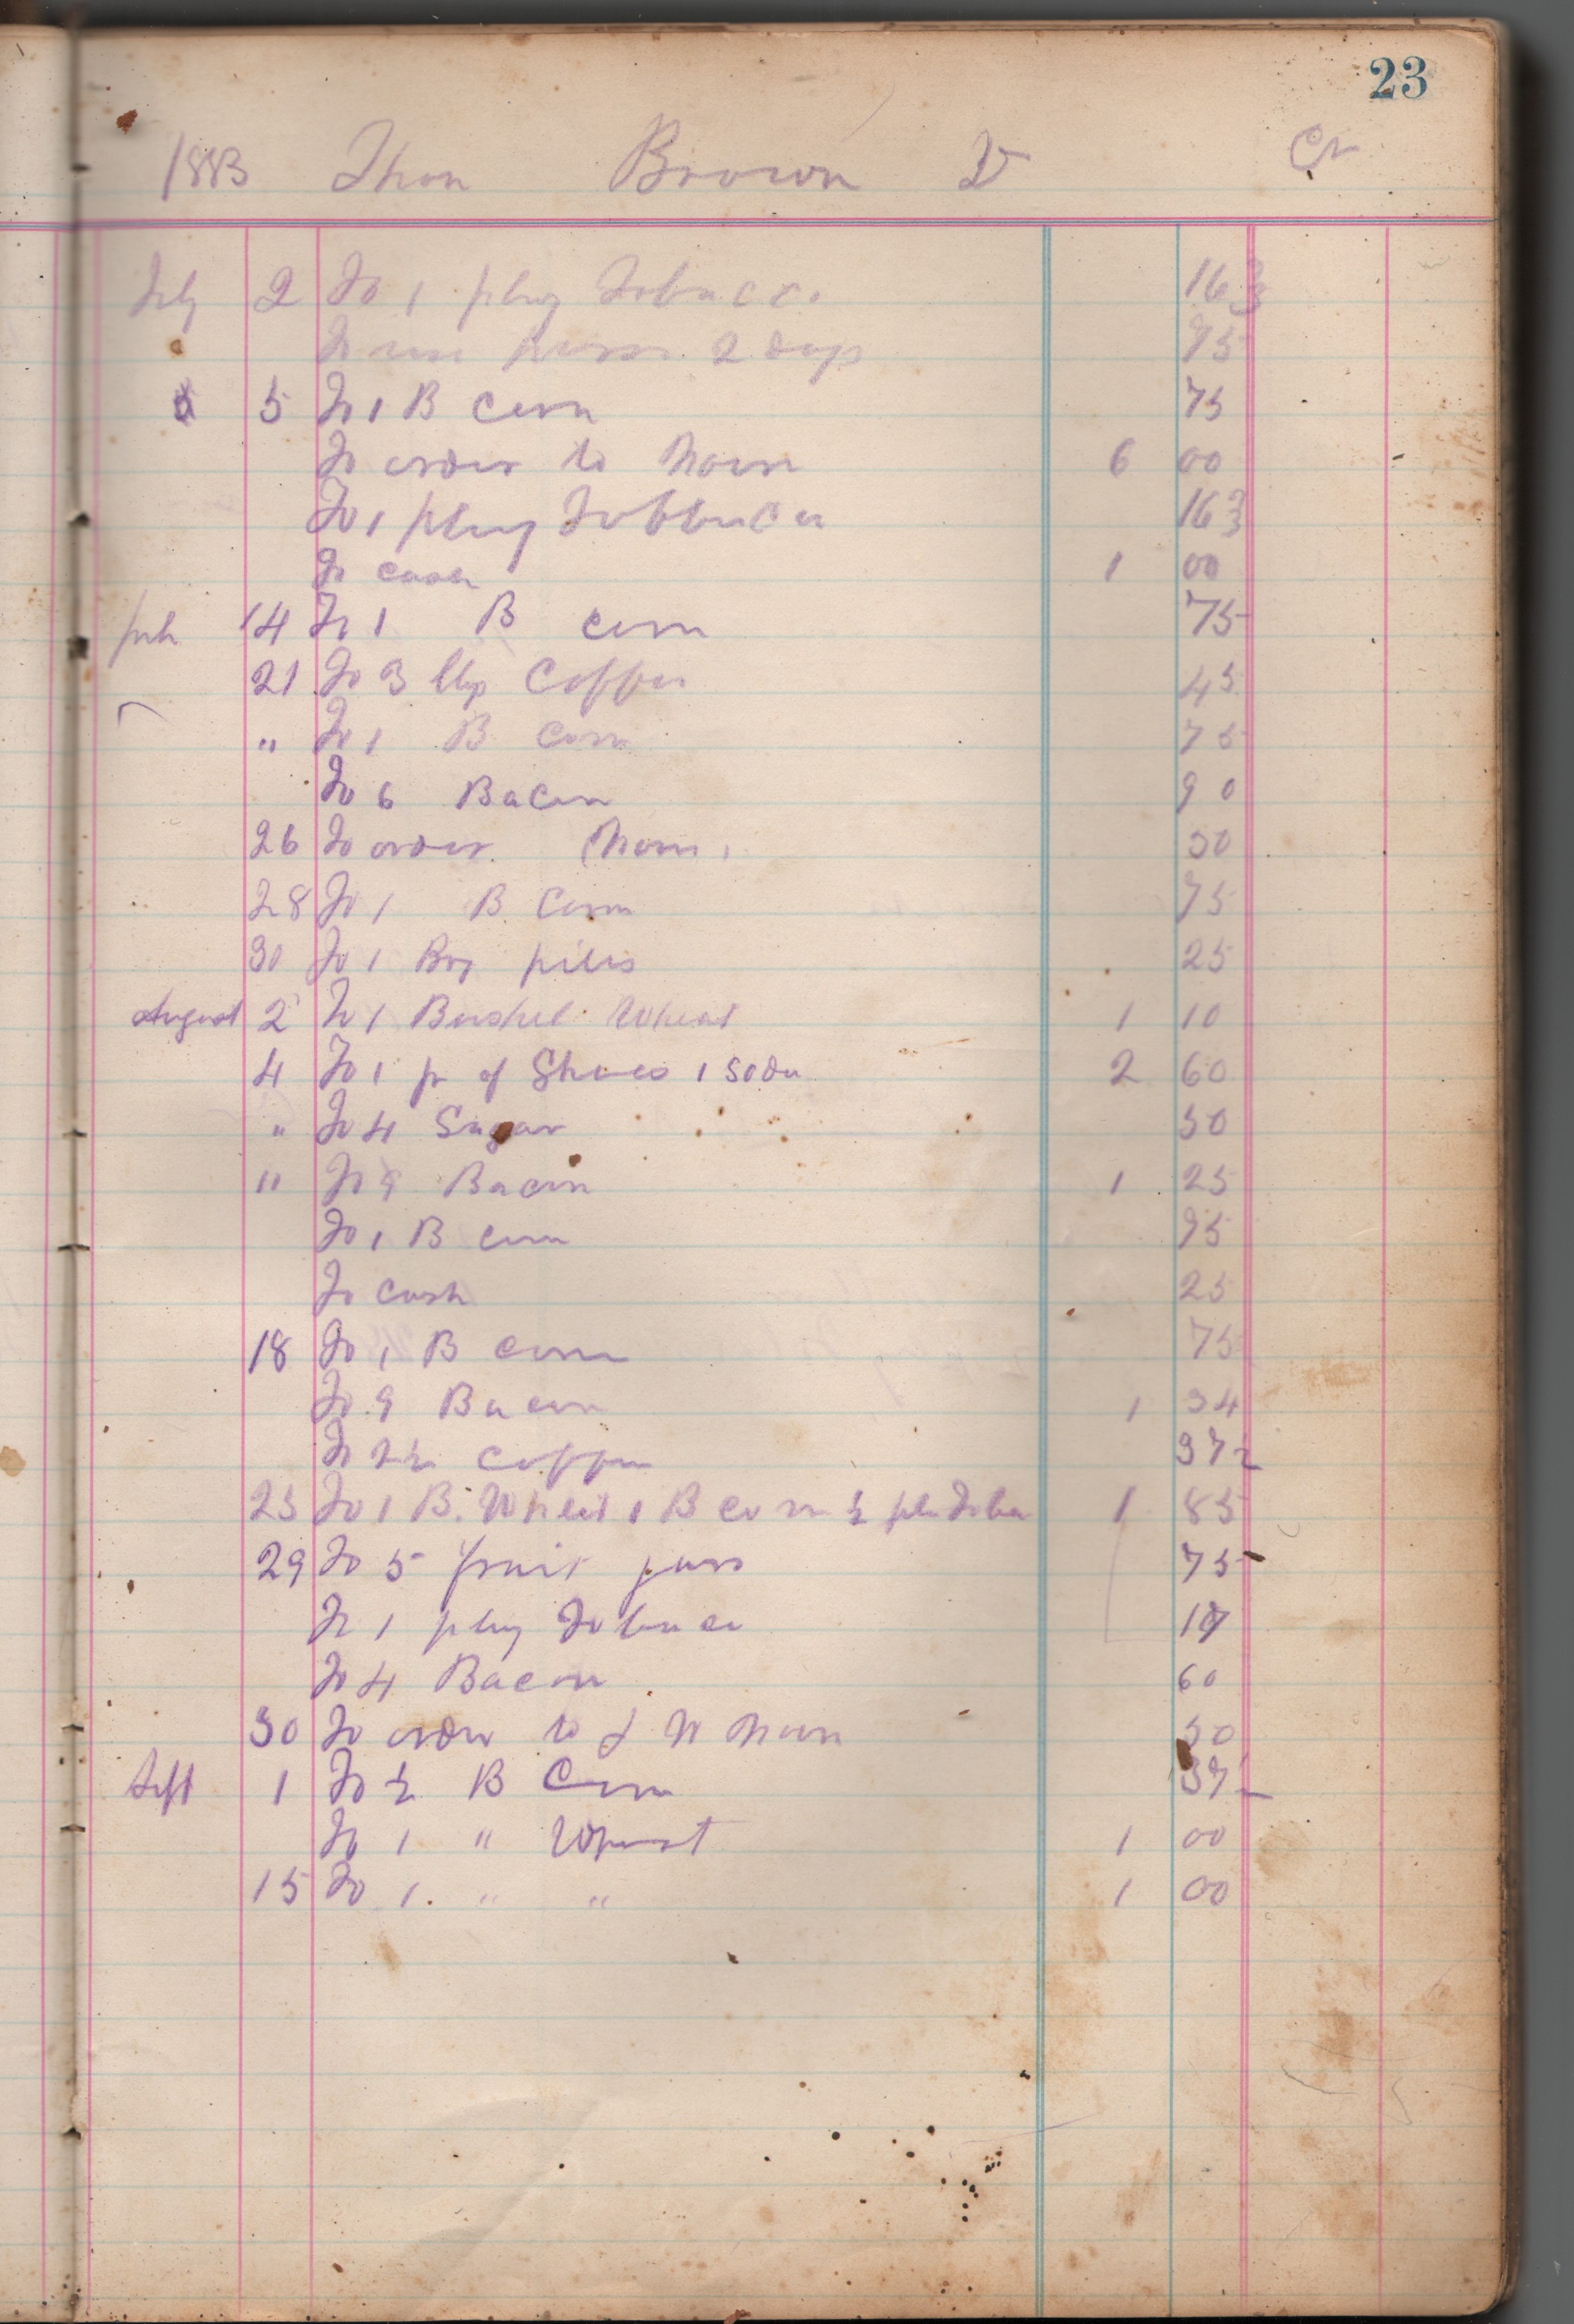 23
1883 Thon Brown Dr Cr
July 2 To 1 plug Tobacco 16 2/3
To use horse 2 days 75
5 To 1 B corn 75
To order to Norn 6 00
To 1 plug Tobbaco 16 2/3
To cash 1 00
July 14 To 1 B corn 75
21 To 3 lbs Coffee 45
" To 1 B Corn 75
To 6 Bacon 90
26 To order 50
28 To 1 B Corn 75
30 To 1 Box pills 25
August 2 To 1 Bushel Wheat 1 10
4 To 1 pr of Shoes 1 Soda 2 60
" To 4 Sugar 50
11 To 9 Bacon 1 25
To 1 B corn 75
To cash 25
18 To 1 B corn 75
To 9 Bacon 1 34
To 2 1/2 Coffee 37 1/2
25 To 1 B. Wheat 1 B corn 1/2 plu Toba 1 85
29 To 5 fruit jars 75
To 1 plug Tobacco
To 4 Bacon 60
30 To order to J W 50
Sept 1 To 1/2 B Corn 37 1/2
To 1 " Wheat 1 00
15 To 1 " " 1 00